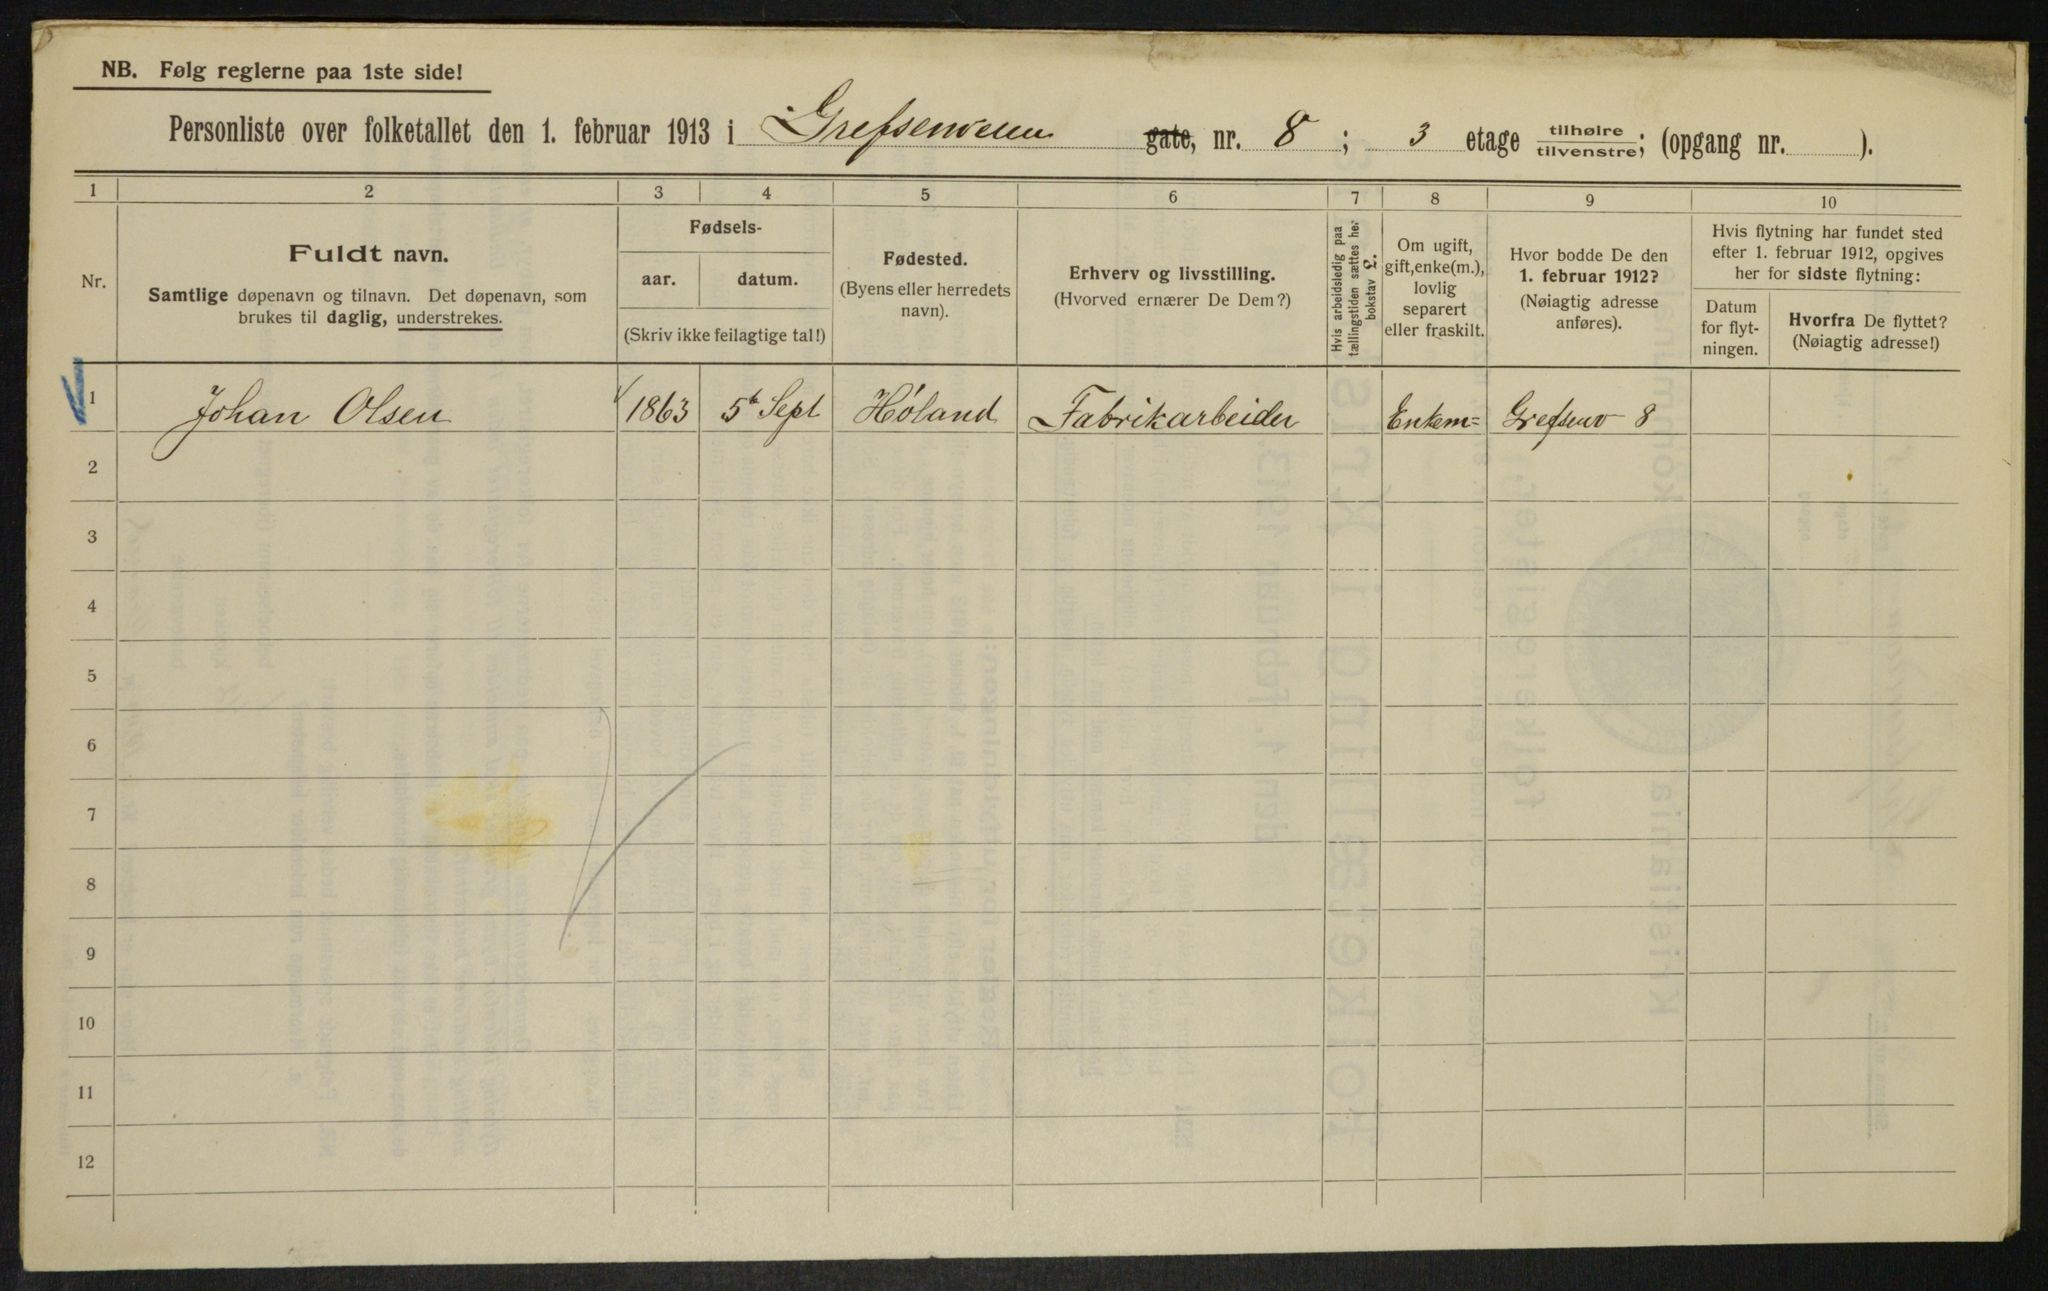 NB. Følg reglerne paa 1ste side!
Personliste over folketallet den 1. februar 1913 i Grefsenveien gate, nr. 8 ; 3 etage tilhøire tilvenstre; (opgang nr. ).
1 2 3 4 5 6 7 8 9 10
Nr.
Fuldt navn.
Samtlige døpenavn og tilnavn. Det døpenavn, som
brukes til daglig, understrekes.
Fødsels-
aar. datum.
(Skriv ikke feilagtige tal!)
Fødested.
(Byens eller herredets
navn).
Erhverv og livsstilling.
(Hvorved ernærer De Dem?)
Hvis arbeidsledig paa
tællingstiden sættes her
bokstav L.
Om ugift,
gift, enke(m.),
lovlig
separert
eller fraskilt.
Hvor bodde De den
1. februar 1912?
(Nøiagtig adresse
anføres).
Hvis flytning har fundet sted
efter 1. februar 1912, opgives
her for sidste flytning:
Datum
for flyt-
ningen.
Hvorfra De flyttet?
(Nøiagtig adresse!)
1 Johan Olsen 1863 5te Sept Høland Fabrikarbeider Enkem= Grefsenv 8
2
3
4
5
6
7
8
9
10
11
12